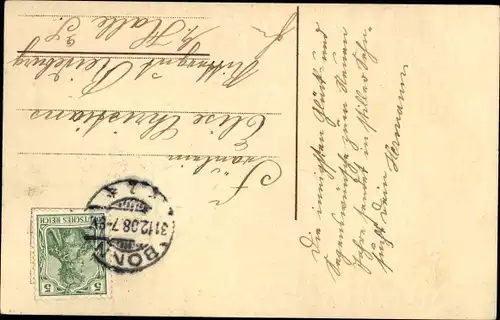 Fräulein
Elise Christians
Rittergut Reideburg
b. Halle a/S.
Die innigsten Glück und
Segenswünsche zum Neuen
Jahre sendet in stiller Sehn-
sucht Dein Hermann
BONN
31.12.08.7-8N
DEUTSCHES REICH
5 5